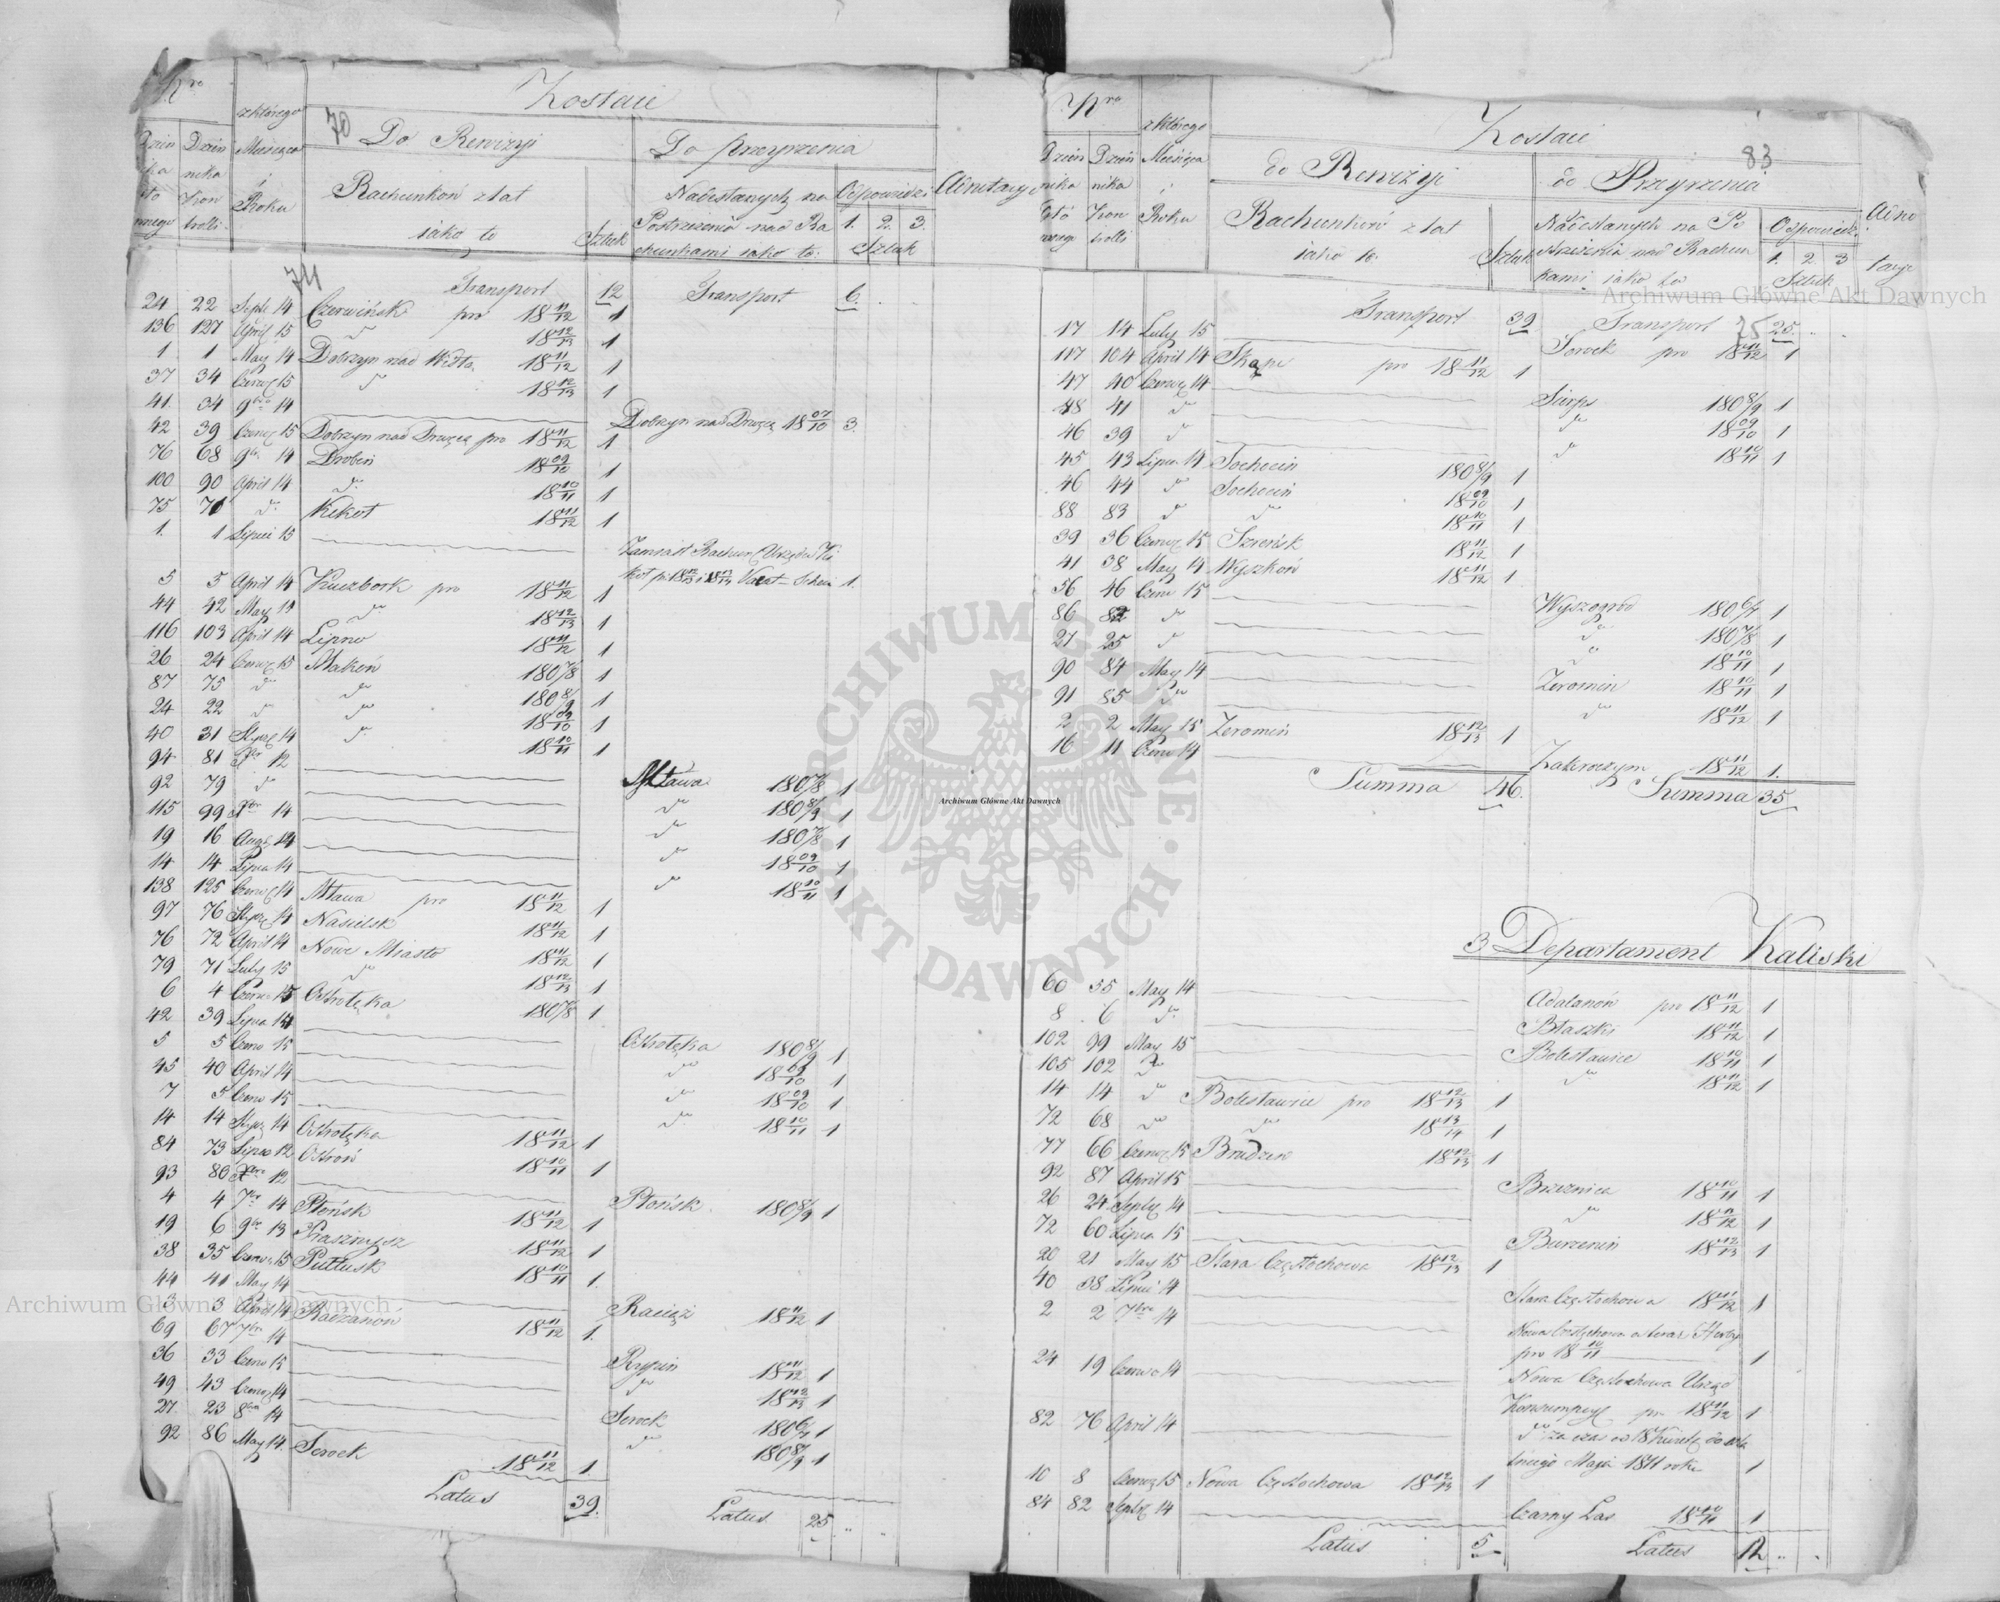 Nro
z którego
Zostaie
70
Dzien
Dzien
Miesiąca
Do Rewizyi
Do przeyrzenia
Adnotacye
nika
i
Rachunków z lat
Nadesłanych na
Odpowiedzi
Kon
Roku
iako to
Sztuk
Postrzeżenia nad Ra
1. 2. 3.
trolli
chunkami iako to:
Sztuk
74
Transport 12 Transport 6.
24 22 Septr 14 Czerwińsk pro 18 11/12 1
136 127 April 15 do 18 12/13 1
1 1 May 14 Dobrzyn nad Wisłą 18 11/12 1
37 34 Czerwc 15 do 18 12/13 1
41. 34 9bro 14 Dobrzyn nad Drwęcą 18 07/10 3.
42 39 Czerwc 15 Dobrzyn nad Drwęcą pro 18 11/12 1
76 68 9br. 14 Drobin 18 09/10 1
100 90 April 14 do 18 10/11 1
75 71 do Kikoł 18 11/12 1
1. 1 Lipiec 15 Zamiast Rachun: Urzędu Ki
koł pro 18 12/13 i 18 13/14 Vacat-Schein 1.
5 5 April 14 Kuczbork pro 18 11/12 1
44 42 May 14 do 18 12/13 1
116 103 April 14 Lipno 18 11/12 1
26 24 Czerwc 15 Maków 180 7/8 1
87 75 do do 180 8/9 1
24 22 do do 18 09/10 1
40 31 Stycz 14 do 18 10/11 1
94 81 Xbr 12 Mława 180 7/8 1
92 79 do do 180 8/9 1
115 99 Xbr 14 do 180 7/8 1
19 16 Augt 14 do 18 09/10 1
14 14 Lipca 14 do 18 10/11 1
138 125 Czerwc 14 Mława pro 18 11/12 1
97 76 Stycz 14 Nasielsk 18 11/12 1
76 72 April 14 Nowe Miasto 18 11/12 1
79 71 Luty 15 do 18 12/13 1
6 4 Czerwc 15 Ostrołęka 180 7/8 1
42 39 Lipca 14 Ostrołęka 180 8/9 1
5 5 Czerw 15 do 18 09/10 1
45 40 April 14 do 18 09/10 1
7 5 Czerw 15 do 18 10/11 1
14 14 Stycz 14 Ostrołęka 18 11/12 1
84 73 Lipca 12 Ostrów 18 10/11 1
93 80 Xbro 12 Płońsk 180 8/9 1
4 4 7br 14 Płońsk 18 11/12 1
19 6 9br 13 Prasznysz 18 11/12 1
38 35 Czerwc 15 Pułtusk 18 10/11 1.
44 41 May 14 Raciąż 18 11/12 1
3 3 April 14 Radzanów 18 11/12 1.
69 67 7br 14 Rypin 18 11/12 1
36 33 Czerw 15 do 18 12/13 1
49 43 Czerwc 14 Serock 180 6/7 1
27. 23 8br 14 do 180 8/9 1
92 86 May 14. Serock 18 11/12 1.
Latus 39. Latus 25
Nro
z którego
Zostaie
83
Dzien
Dzien
Miesiąca
do Rewizyi
do Przeyrzenia
Adno
nika
nika
i
Rachunków z lat
Nadesłanych na Po
Odpowiedzi
tacye
Kon
Roku
iako to.
Sztuk
strzeżenia nad Rachun
1. 2. 3
trolli
kami iako to
Sztuk
Transport 39 Transport 25.
75
17 14 Luty 15 Serock pro 18 11/12 1
117 104 April 14 Skąpe pro 18 11/12 1
47 40 Czerwc 14 Sierps 180 8/9 1
48 41 do do 18 09/10 1
46 39 do do 18 10/11 1
45 43 Lipca 14 Sochocin 180 8/9 1
46 44 do Sochocin 18 09/10 1
88 83 do do 18 10/11 1
39 36 Czerwc 15 Szreńsk 18 11/12 1
41 38 May 14 Wyszków 18 11/12 1
56 46 Czerw 15 Wyszogród 180 6/7 1
86 82 do do 180 7/8 1
27 25 do do 18 10/11 1
90 84 May 14 Żeromin 18 10/11 1
91 85 do do 18 11/12 1
2 2 May 15 Żeromin 18 12/13 1
16 11 Czerw 14 Zakroczym 18 11/12 1.
Summa 46. Summa 35
3 Departament Kaliski
60 55 May 14 Adalanów pro 18 11/12 1
8 6 do Błaszki 18 11/12 1
102 99 May 15 Bolesławice 18 10/11 1
105 102 do do 18 11/12 1
14 14 do Bolesławice pro 18 12/13 1
72 68 do do 18 13/14 1
77 66 Czerwc 15 Brudzew 18 12/13 1
92 87 April 15 Brzeznica 18 10/11 1
26 24 Septr 14 do 18 11/12 1
72 60 Lipca 15 Burzenin 18 12/13 1
20 21 May 15 Stara Częstochowa 18 12/13 1
40 38 Lipiec 14 Stara Częstochowa 18 11/12 1
2 2 7bro 14 Nowa Częstochowa a teraz Herby
pro 18 10/11 1
24 19 Czerwc 14 Nowa Częstochowa Urząd
Konsumpcyi pro 18 11/12 1
82 76 April 14 do za czas od 18 Kwietn: do osta
tniego Maja 1811 roku 1
10 8 Czerwc 15 Nowa Częstochowa 18 12/13 1
84 82 Septr 14 Czarny Las 18 10/11 1
Latus 5 Latus 12
Archiwum Główne Akt Dawnych
Archiwum Główne Akt Dawnych
Archiwum Główne Akt Dawnych
ARCHIWUM GŁÓWNE · AKT DAWNYCH ·